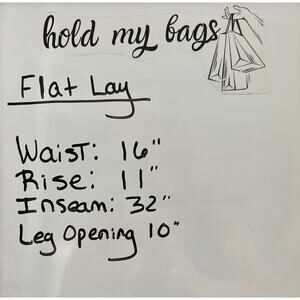 hold my bags
Flat Lay
Waist: 16"
Rise: 11"
Inseam: 32"
Leg Opening 10"